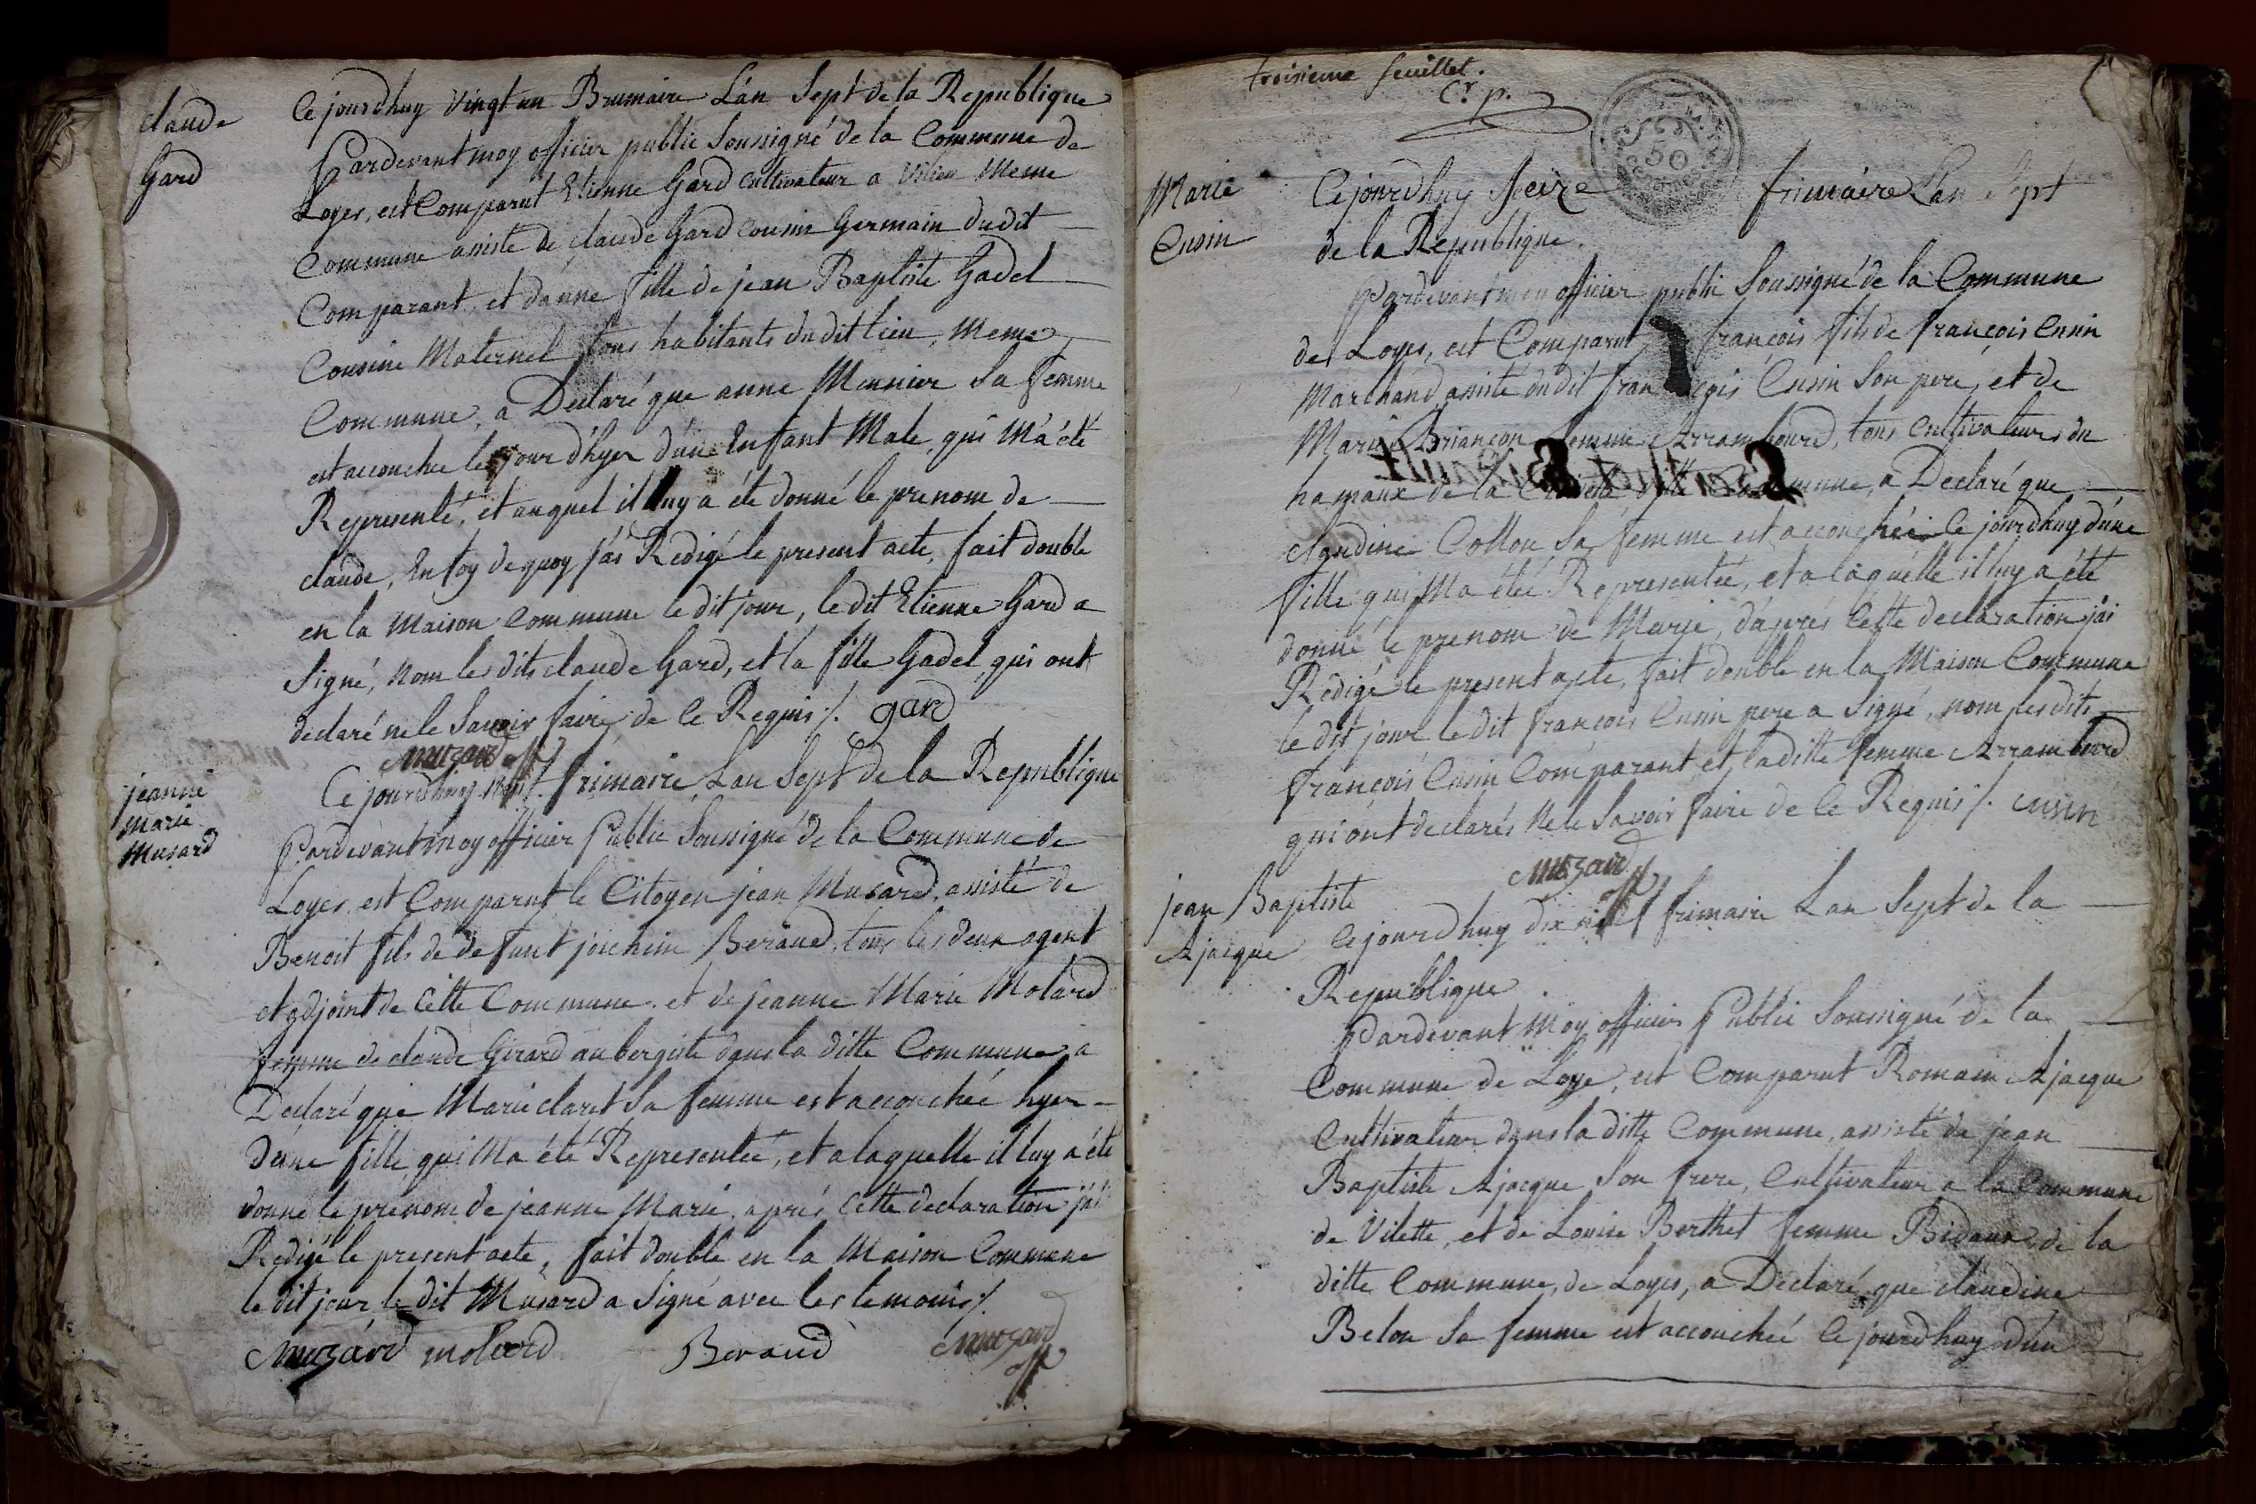 claude
Gard
Ce jourdhuy vingt un Brumaire L'an Sept de la Republique
Pardevant moy officier public Soussigné de la Commune de
Loyes, est Comparut Etienne Gard Cultivateur a Meme
Commune assisté de claude Gard Cousin Germain dudit
Comparant, et d'anne fille de jean Baptiste Gadel
Cousine Maternel tous habitants dudit lieu, Meme
Commune, a Declaré que anne Monnier Sa femme
est accouchee le jour d'hyer d'une Enfant Male, qui M'a été
Representé, et auquel il luy a été donné le prenom de
claude, En foy de quoy j'ai Redigé le present acte, fait double
en la Maison Commune le dit jour, le dit Etienne Gard a
Signé, Nom les dits claude Gard, et la fille Gadel, qui ont
declaré ne le Savoir faire de Ce Requis /. gard
Muzard off
jeanne
Marie
Musard
Ce jourdhuy frimaire Lan Sept de la Republique
Pardevant Moy officier Public Soussigné de la Commune de
Loyes est Comparut le Citoyen jean Musard, assisté de
Benoit fils de defunt joachim Beraud, tous les deux agent
et adjoint de Cette Commune, et de jeanne Marie Molard
femme de claude Girard aubergiste dans la ditte Commune a
Declaré que Marie claret Sa femme est accouchée hyer
D'une fille qui Ma été Representée, et a laquelle il luy a été
donné le prenom de jeanne Marie, aprés Cette declaration j'ai
Redigé le present acte, fait double en la Maison Commune
le dit jour le dit Musard a Signé avec les temoins /.
Muzard molard Beraud Muzard
off
troisieme feuillet.
Cr. p.
50
Marie
Cusin
Ce jourdhuy Seize frimaire Lan Sept
de la Republique.
Pardevant moy officier public Soussigné de la Commune
de Loyes, est Comparut françois fils de françois Cusin
Marchand assisté dudit françois Cusin Son pere, et de
Marie Briançon femme Arrambourd, tous Cultivateurs du
hamaux de la Commune, a Declaré que
claudine Cotton Sa femme est accouchée Ce jourdhuy d'une
fille qui Ma été Representée, et a laquelle il luy a été
donné le prenom de Marie, d'aprés Cette declaration j'ai
Redigé le present acte, fait double en la Maison Commune
le dit jour le dit françois Cusin pere a Signé, nom les dits
françois Cusin Comparant et la ditte femme Arrambourd
qui ont declarés Ne le Savoir faire de Ce Requis /. cusin
Muzard
off
jean Baptiste
Ajacque
Ce jourdhuy dix neuf frimaire Lan Sept de la
Republique
Pardevant Moy officier Public Soussigné de la
Commune de Loye, est Comparut Romain Ajacque
Cultivateur dans la ditte Commune, assisté de jean
Baptiste Ajacque Son frere, Cultivateur a la Commune
de Vilette, et de Louise Berthet femme Bidaud de la
ditte Commune, de Loyes, a Declaré que claudine
Belon Sa femme est accouchée Ce jourdhuy d'un